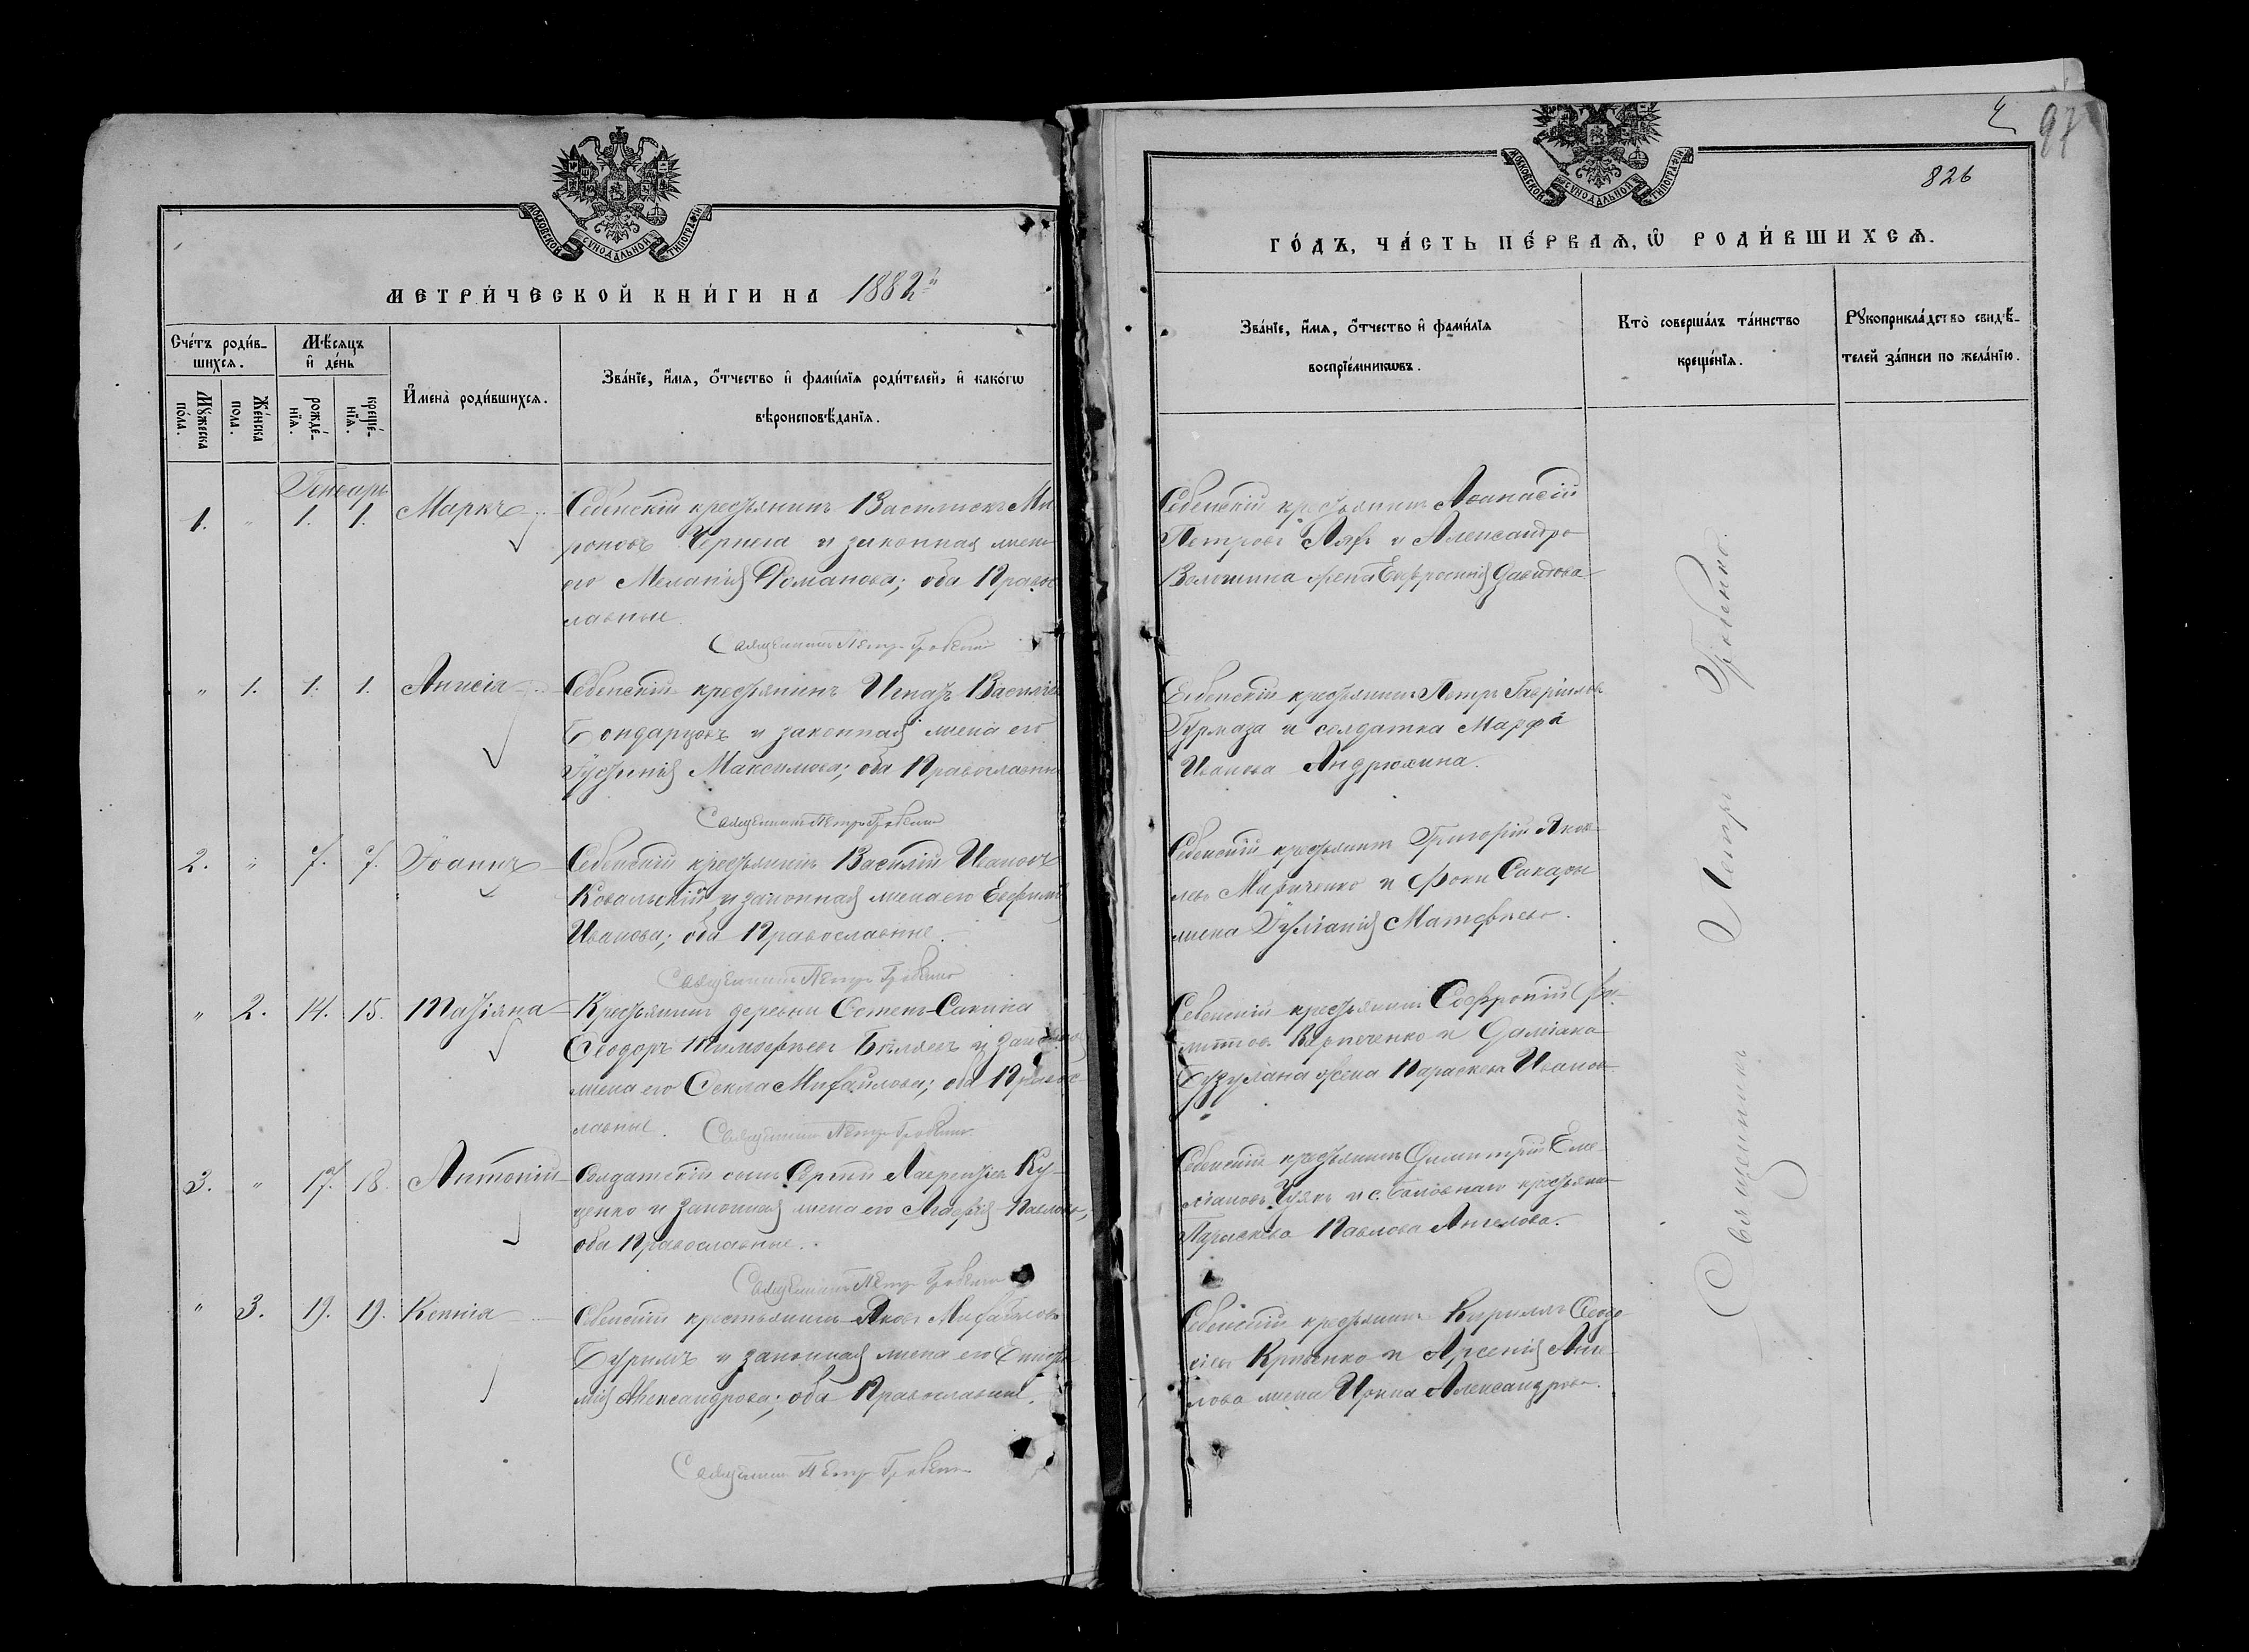 МОСКОВСКОЙ СѴНОДАЛЬНОЙ ТИПОГРАФІИ
МЕТРИ́ЧЕСКОЙ КНИ́ГИ НА 1882й
Сче́тъ роди́в-
шихсѧ.
Мѣ́сѧцъ
и҆ де́нь
Мꙋ́жеска
по́ла.
Же́нска
пола.
рожде́-
нїѧ.
креще́-
нїѧ.
И҆мена̀ роди́вшихсѧ.
Зва́нїе, и҆́мѧ, ѻ҆́тчество и҆ фами́лїѧ роди́телей, и҆ како́гѡ
вѣроисповѣ́данїѧ.
Генварь
1. " 1. 1. Маркъ
Себенскій крестьянинъ Василискъ Ми
роновъ Чернега и законная жена
его Меланія Романова; оба Правос
лавные.
Священникъ Петръ
" 1. 1. 1. Анисія
Себенскій крестьянинъ Игнатъ Васильевъ
Бондарцовъ и законная жена его
Іустинія Максимова; оба Православные
Священникъ Петръ
2. " 7. 7. Іоаннъ
Себенскій крестьянинъ Василій Ивановъ
Ковальскій и законная жена его Евфимія
Иванова; оба Православные.
Священникъ Петръ
" 2. 14. 15. Татіяна
Крестьянинъ деревни
Ѳеодоръ Тимофѣевъ Бѣляевъ и законная
жена его Ѳекла Михайлова; оба Правос-
лавные.
Священникъ Петръ
3. " 17. 18. Антоній
Солдатскій сынъ Сергій Лаврентьевъ Ку-
ценко и законная жена его Агафія Павлова,
оба Православные.
Священникъ Петръ
" 3. 19. 19. Ксенія
Себенскій крестьянинъ Яковъ Михайловъ
Буримъ и законная жена его
Александрова; оба Православные.
Священникъ Петръ
4
97
826
МОСКОВСКОЙ СѴНОДАЛЬНОЙ ТИПОГРАФІИ
ГО́ДЪ, ЧА́СТЬ ПЕ́РВАѦ, Ѡ҆ РОДИ́ВШИХСѦ.
Зва́нїе, и҆́мѧ, ѻ҆́тчество и҆ фами́лїѧ
воспрїе́мникѡвъ.
Кто̀ соверша́лъ та́инство
креще́нїѧ.
Рꙋкоприкла́дство свидѣ́-
телей за́писи по жела́нїю.
Себенскій крестьянинъ Аѳанасій
Петровъ Ляхъ и Александра
Волошина жена Евфросинія Давидова
Себенскій крестьянинъ Петръ Гавріиловъ
Гурмаза и солдатка Марфа
Иванова Андрюхина.
Себенскій крестьянинъ Григорій Яков-
левъ и Фоки Сакары
жена Іуліанія Матфѣева.
Себенскій крестьянинъ Софроній
и Даміана
жена Параскева Иванов.
Себенскій крестьянинъ Димитрій Еме-
ліановъ и с. крестьянка
Параскева Павлова Ангелова.
Себенскій крестьянинъ Кириллъ Ѳеодо
сіевъ Кривенко и Арсенія Анге-
лова жена Ирина Александрова.
Священникъ Петръ